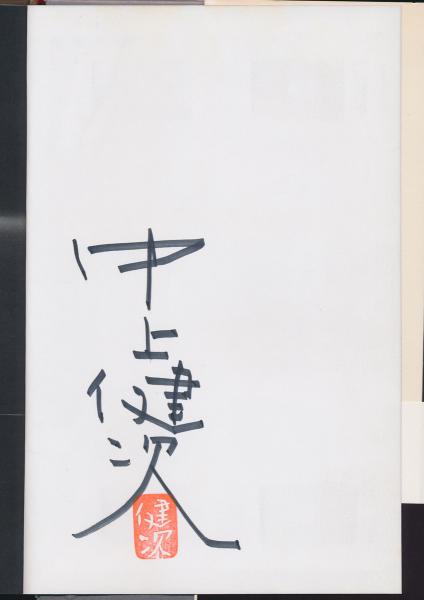 中上健次
健次